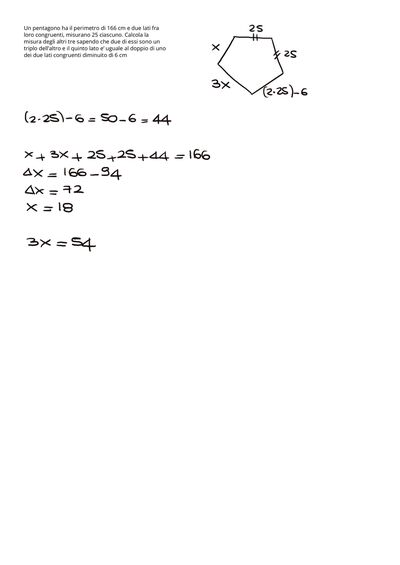 Un pentagono ha il perimetro di 166 cm e due lati fra
loro congruenti, misurano 25 ciascuno. Calcola la
misura degli altri tre sapendo che due di essi sono un
triplo dell'altro e il quinto lato e' uguale al doppio di uno
dei due lati congruenti diminuito di 6 cm
25
x
25
3x
(2·25)-6
(2·25)-6=50-6=44
x+3x+25+25+44=166
4x=166-94
4x=72
x=18
3x=54